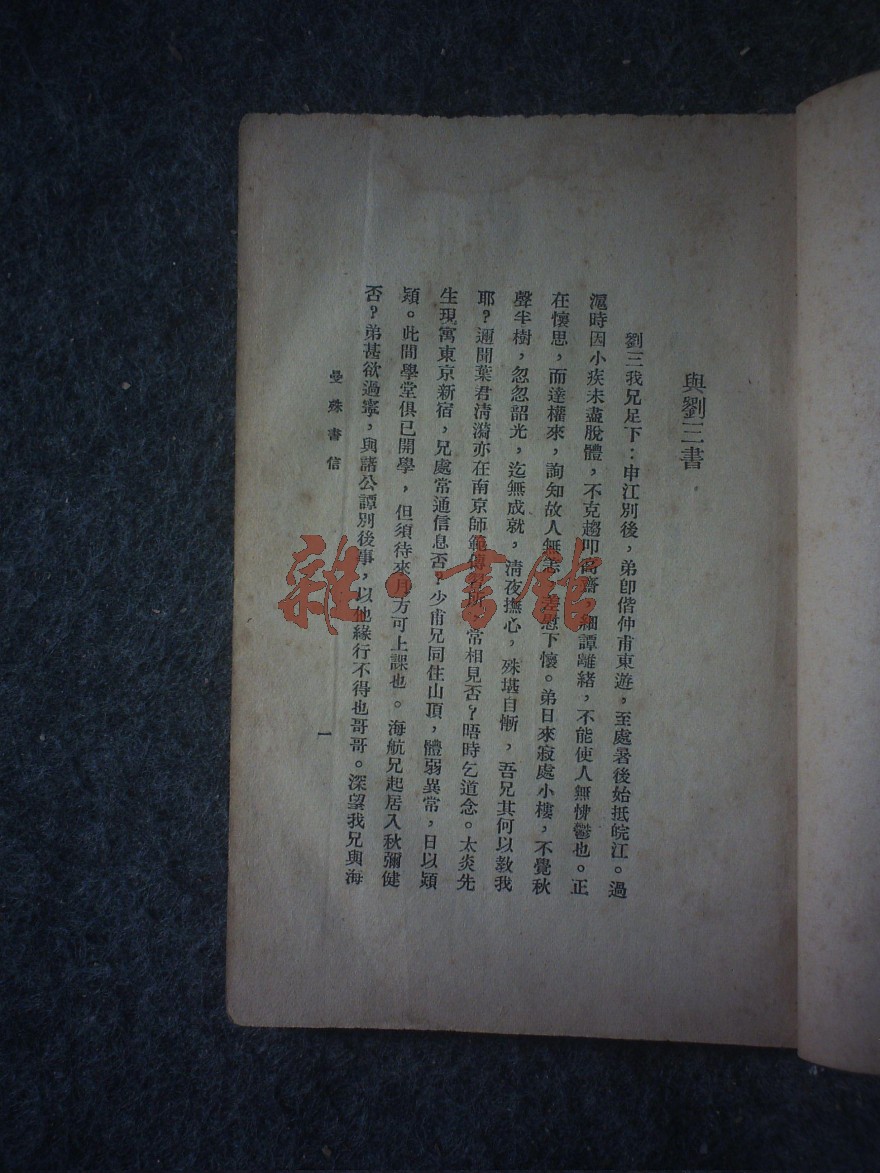 與劉三書
劉三我兄足下：申江別後，弟卽偕仲甫東遊，至處暑後始抵皖江。過
滬時因小疾未盡脫體，不克趨叩高齋，細譚離緒，不能使人無悱鬱也。正
在懷思，而達權來，詢知故人無恙，差慰下懷。弟日來寂處小樓，不覺秋
聲半樹，忽忽韶光，迄無成就，淸夜撫心，殊堪自慚，吾兄其何以敎我
耶？邇聞葉君淸漪亦在南京師範傳習所，常相見否？晤時乞道念。太炎先
生現寓東京新宿，兄處常通信息否？少甫兄同住山頂，體弱異常，日以熲
熲。此間學堂俱已開學，但須待來月方可上課也。海航兄起居入秋彌健
否？弟甚欲過寧，與諸公譚別後事，以他緣行不得也哥哥。深望我兄與海
曼殊書信
一
雜·書館